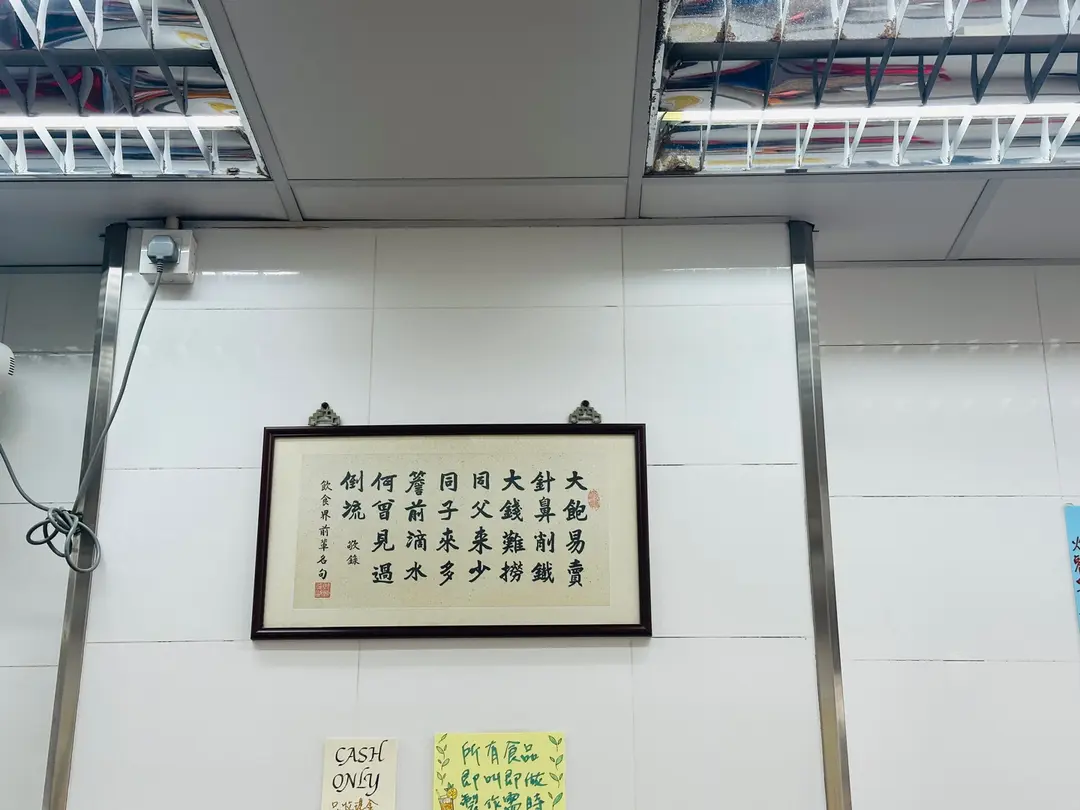 大飽易賣
針鼻削鐵
大錢難撈
同父来少
同子來多
簷前滴水
何曾見過
倒流 敬錄
飲食界前輩名句
CASH
ONLY
只收現金
所有食品
即叫即做
製作需時